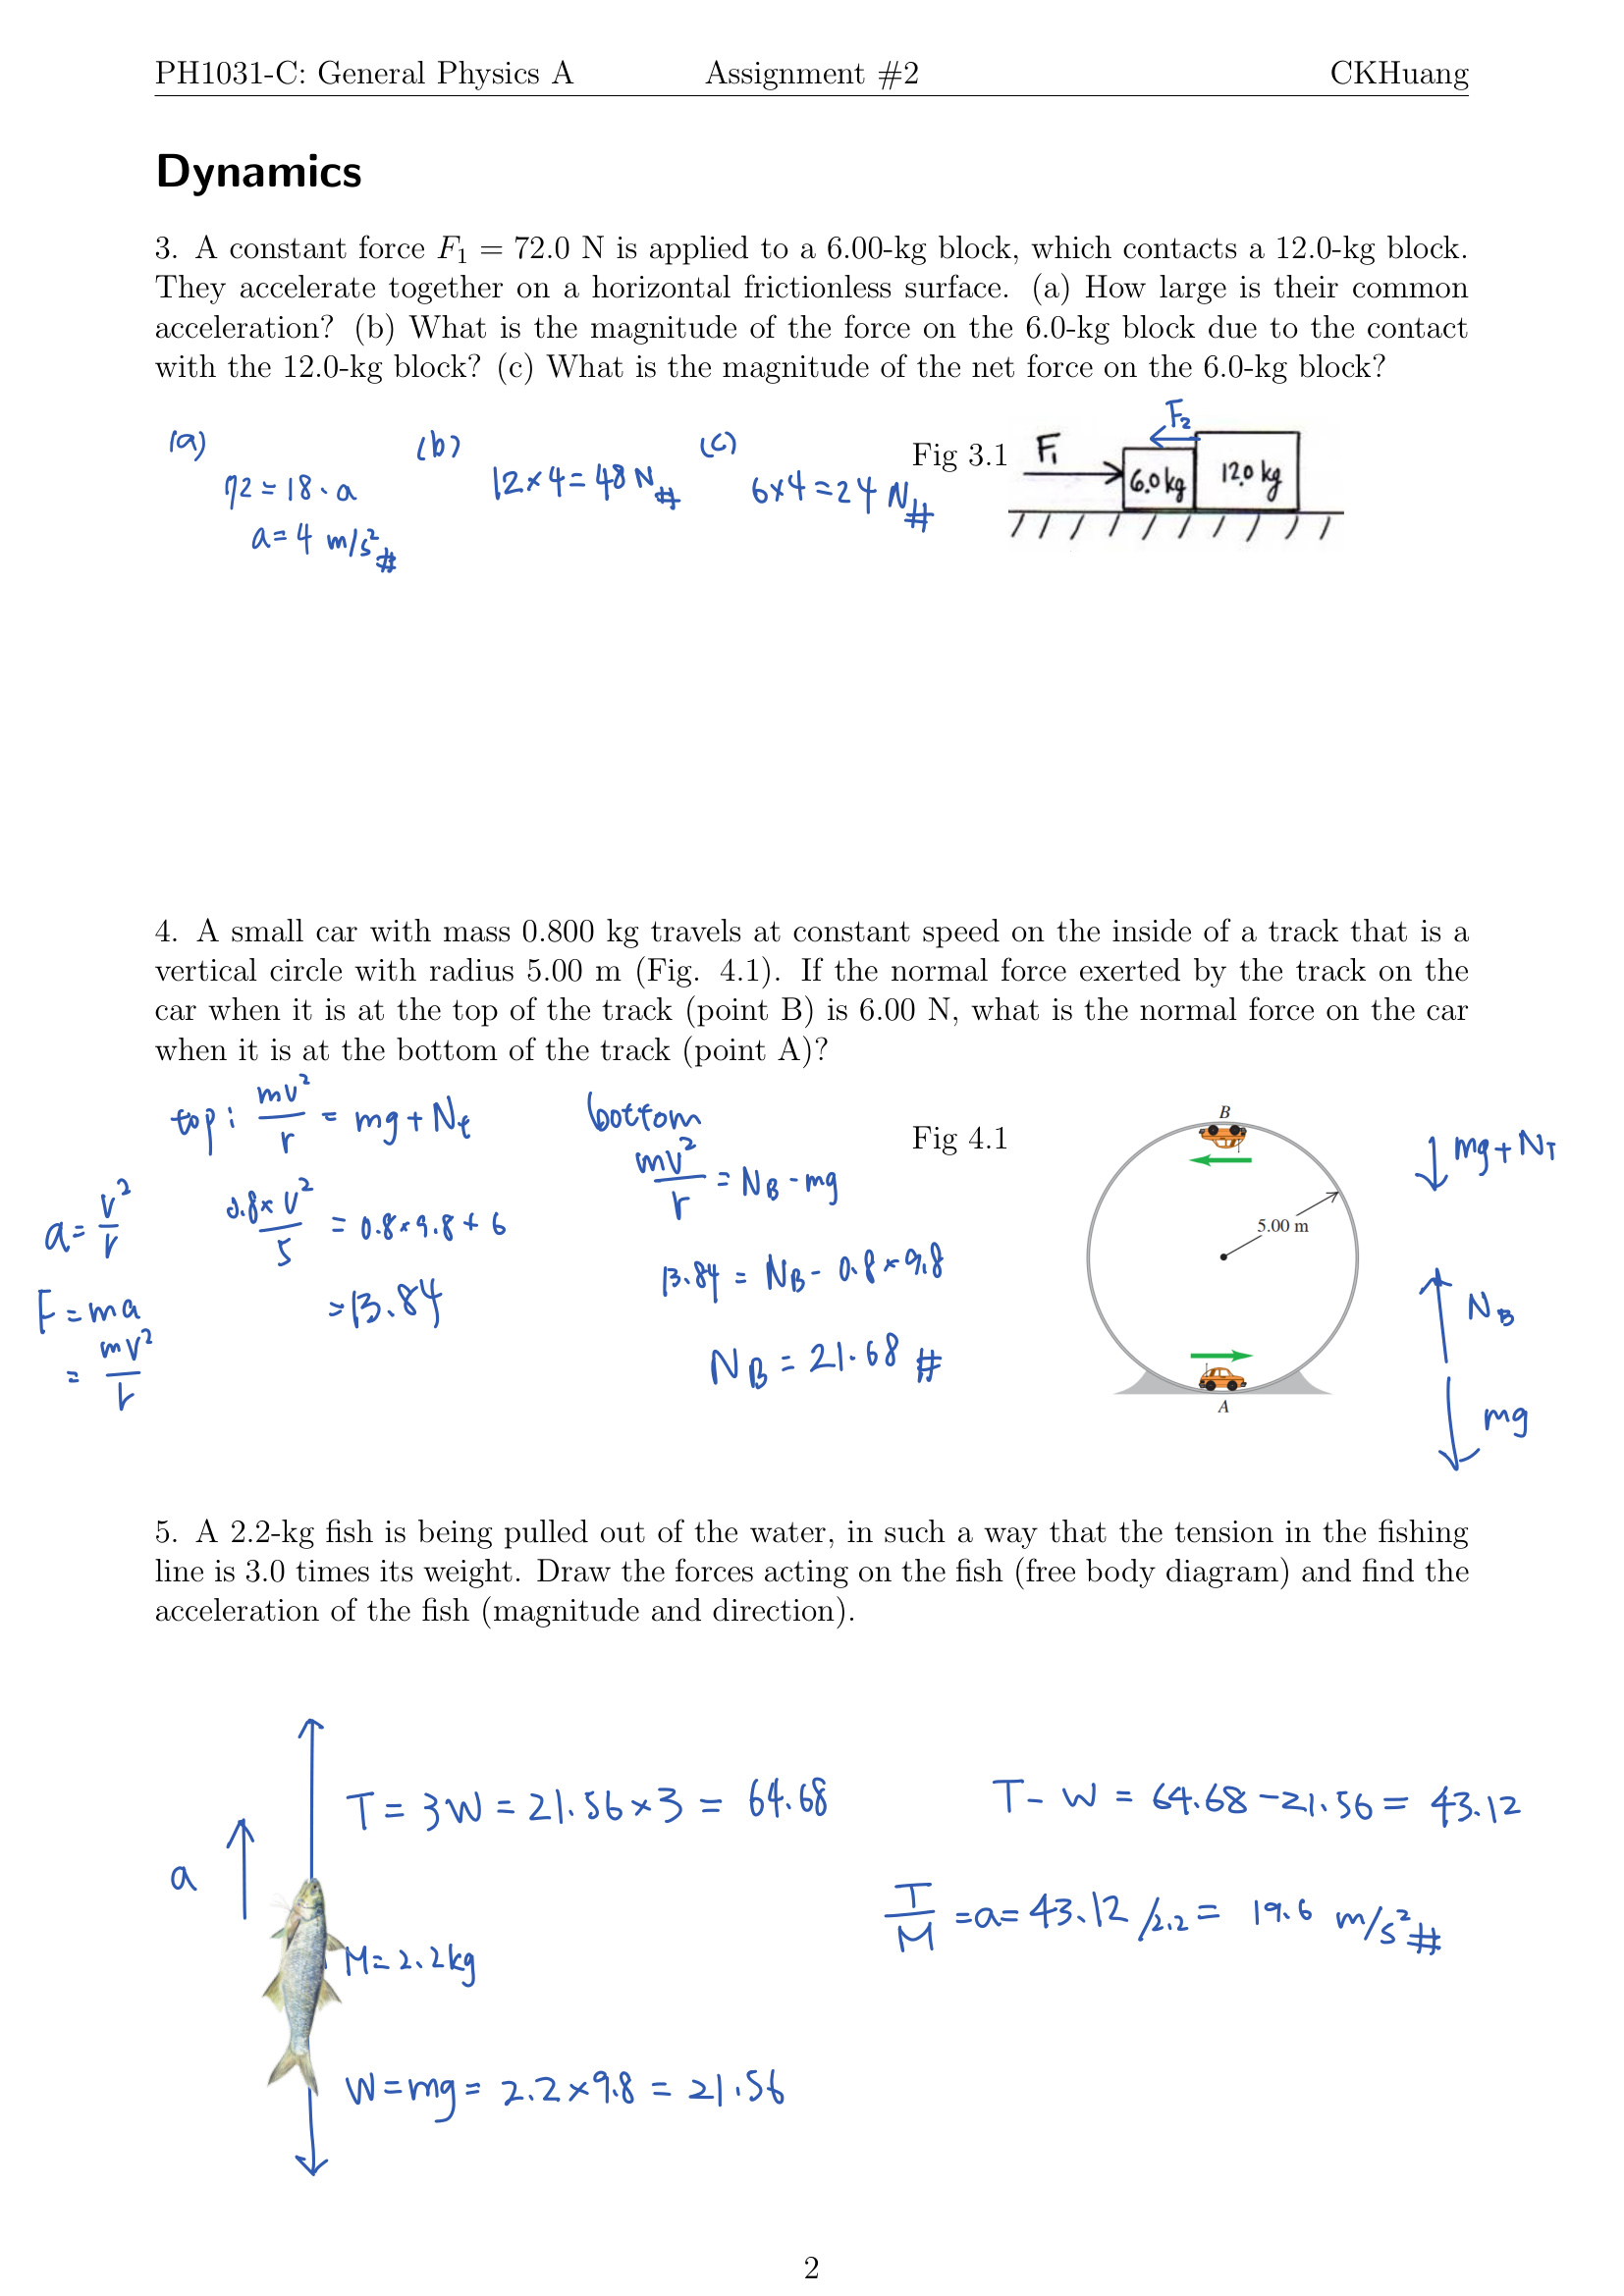 PH1031-C: General Physics A Assignment #2 CKHuang
Dynamics
3. A constant force F₁ = 72.0 N is applied to a 6.00-kg block, which contacts a 12.0-kg block.
They accelerate together on a horizontal frictionless surface. (a) How large is their common
acceleration? (b) What is the magnitude of the force on the 6.0-kg block due to the contact
with the 12.0-kg block? (c) What is the magnitude of the net force on the 6.0-kg block?
(a)
72 = 18 · a
a = 4 m/s² #
(b)
12 × 4 = 48 N #
(c)
6 × 4 = 24 N #
Fig 3.1
F₁
F₂
6.0 kg
12.0 kg
4. A small car with mass 0.800 kg travels at constant speed on the inside of a track that is a
vertical circle with radius 5.00 m (Fig. 4.1). If the normal force exerted by the track on the
car when it is at the top of the track (point B) is 6.00 N, what is the normal force on the car
when it is at the bottom of the track (point A)?
a = v²/r
F = ma
= mv²/r
top: mv²/r = mg + Nt
0.8 × v²/5 = 0.8 × 9.8 + 6
= 13.84
bottom
mv²/r = NB - mg
13.84 = NB - 0.8 × 9.8
NB = 21.68 #
Fig 4.1
B
5.00 m
A
mg + NT
NB
mg
5. A 2.2-kg fish is being pulled out of the water, in such a way that the tension in the fishing
line is 3.0 times its weight. Draw the forces acting on the fish (free body diagram) and find the
acceleration of the fish (magnitude and direction).
a
T = 3W = 21.56 × 3 = 64.68
M = 2.2kg
W = mg = 2.2 × 9.8 = 21.56
T - W = 64.68 - 21.56 = 43.12
T/M = a = 43.12 / 2.2 = 19.6 m/s² #
2